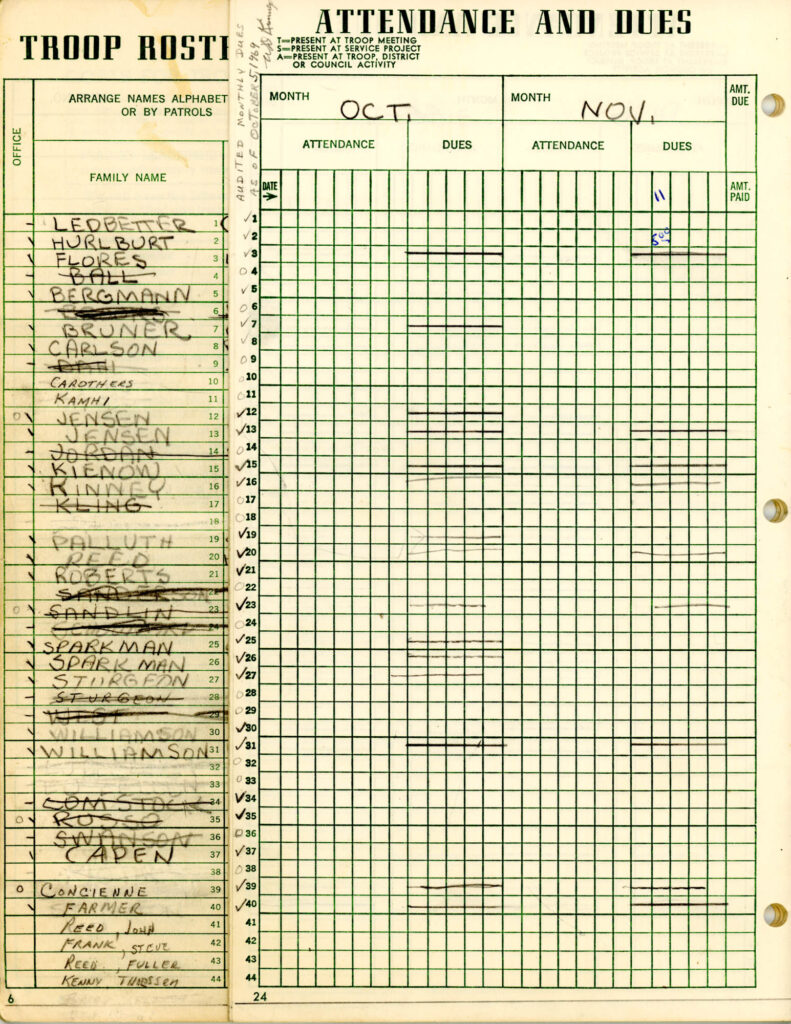 TROOP ROST
ARRANGE NAMES ALPHABET
OR BY PATROLS
OFFICE
FAMILY NAME
LEDBETTER 1
HURLBURT 2
FLORES 3
BALL 4
BERGMANN 5
6
BRUNER 7
CARLSON 8
9
CAROTHERS 10
KAMHI 11
JENSEN 12
JENSEN 13
JORDAN 14
KIENOW 15
KINNEY 16
KLING 17
18
PALLUTH 19
REED 20
ROBERTS 21
SANDERSON
SANDLIN 23
24
SPARKMAN 25
SPARKMAN 26
STURGEON 27
STURGEON 28
WEST 29
WILLIAMSON 30
WILLIAMSON 31
32
33
COMSTOCK 34
RUSSO 35
SWANSON 36
CAPEN 37
38
CONCIENNE 39
FARMER 40
REED, JOHN 41
FRANK, STEVE 42
REED, FULLER 43
KENNY THOSSEN 44
6
ATTENDANCE AND DUES
T=PRESENT AT TROOP MEETING
S=PRESENT AT SERVICE PROJECT
A=PRESENT AT TROOP, DISTRICT
OR COUNCIL ACTIVITY
AUDITED MONTHLY DUES
AS OF OCTOBER 5, 1969
MONTH OCT. MONTH NOV. AMT. DUE
ATTENDANCE DUES ATTENDANCE DUES
DATE 11 AMT. PAID
1
2 5.00
3
4
5
6
7
8
9
10
11
12
13
14
15
16
17
18
19
20
21
22
23
24
25
26
27
28
29
30
31
32
33
34
35
36
37
38
39
40
41
42
43
44
24